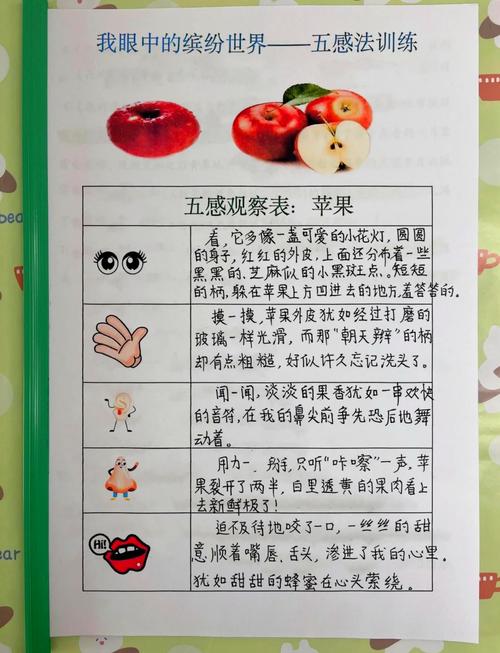 我眼中的缤纷世界——五感法训练
五感观察表：苹果
看，它多像一盏可爱的小花灯，圆圆
的身子，红红的外皮，上面还分布着一些
黑黑的、芝麻似的小黑斑点。短短
的柄，躲在苹果上方凹进去的地方，羞答答的。
摸一摸，苹果外皮犹如经过打磨的
玻璃一样光滑，而那“朝天辫”的柄
却有点粗糙，好似许久忘记洗头了。
闻一闻，淡淡的果香犹如一串欢快
的音符，在我的鼻尖前争先恐后地舞
动着。
用力一掰，只听“咔嚓”一声，苹
果裂开了两半，白里透黄的果肉看上
去新鲜极了！
Hi!
迫不及待地咬了一口，一丝丝的甜
意顺着嘴唇、舌头，渗进了我的心里。
犹如甜甜的蜂蜜在心头萦绕。
bear
ear